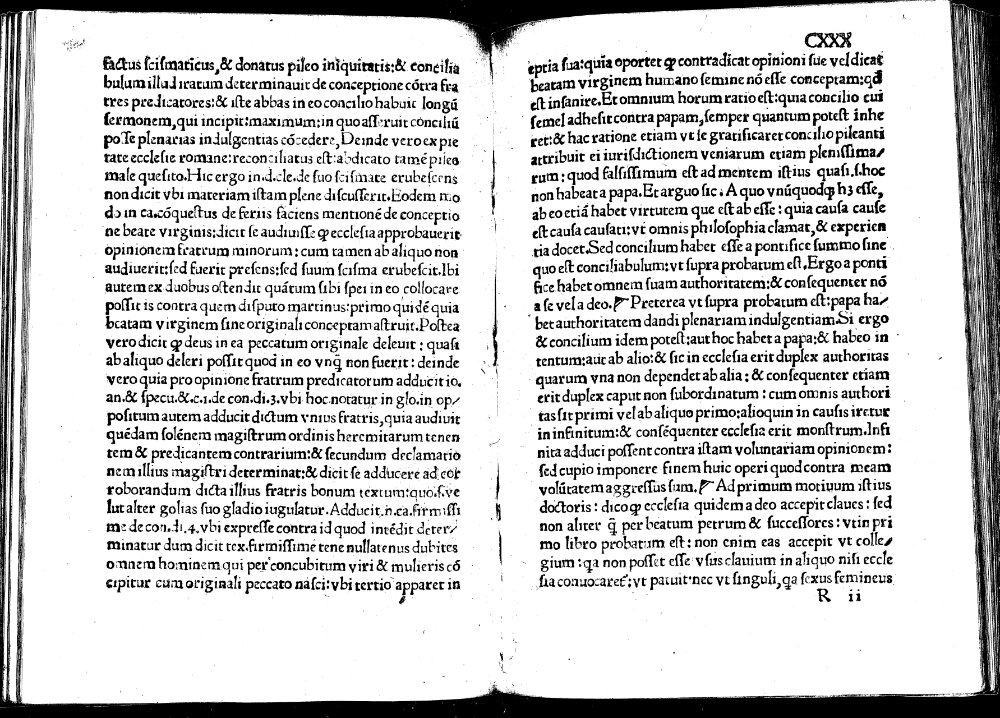 factus scismaticus, & donatus pileo iniquitatis: & concilia
bulum illud iratum determinauit de conceptione cōtra fra
tres predicatores: & iste abbas in eo concilio habuic longū
sermonem, qui incipit: maximum: in quo asseruit conciliū
posse plenarias indulgentias cōcedere, Deinde vero ex pie
tate ecclesie romane: reconciliatus est: abdicato tamē pileo
male quesito. Hic ergo in.d.ele.de suo scismate erubescens
non dicit vbi materiam istam plene discusserit. Eodem mo
do in ca.cōquestus de feriis faciens mentionē de conceptio
ne beate virginis: dicit se audiuisse ꝙ ecclesia approbauerit
opinionem fratrum minorum: cum tamen ab aliquo non
audiuerit: sed fuerit presens: sed suum scisma erubescit. Ibi
autem ex duobus ostendit quātum sibi spei in eo collocare
possit is contra quem disputo martinus: primo quidē quia
beatam virginem sine originali conceptam astruit. Postea
vero dicit ꝙ deus in ea peccatum originale deleuit: quasi
ab aliquo deleri possit quod in eo vnq̃ non fuerit: deinde
vero quia pro opinione fratrum predicatorum adducit io.
an.& specu.&.c.i.de con.di.3.vbi hoc notatur in glo.in op⸗
positum autem adducit dictum vnius fratris, quia audiuit
quēdam solēnem magistrum ordinis heremitarum tenen
tem & predicantem contrarium: & secundum declamatio
nem illius magistri determinat: & dicit se adducere ad cor
roborandum dicta illius fratris bonum textum: quo siue
lut alter golias suo gladio iugulatur. Adducit.n.ca.firmissi
me de con.di.4.vbi expresse contra id quod intēdit deter⸗
minatur dum dicit tex.firmissime tene nullatenus dubites
omnem hominem qui per concubitum viri & mulieris cō
cipitur cum originali peccato nasci: vbi tertio apparet in
CXXX
eptia sua: quia oportet ꝙ contradicat opinioni sue vel dicat
beatam virginem humano semine nō esse conceptam: qd̄
est insanire. Et omnium horum ratio est: quia concilio cui
semel adhesit contra papam, semper quantum potest inhe
ret: & hac ratione etiam vt se gratificaret concilio pileanti
attribuit ei iurisdictionem veniarum etiam plenissima⸗
rum: quod falsissimum est ad mentem istius quasi.s.hoc
non habeat a papa. Et arguo sic. A quo vnūquodꝙ hȝ esse,
ab eo etiā habet virtutem que est ab esse: quia causa cause
est causa causati: vt omnis philosophia clamat, & experien
tia docet. Sed concilium habet esse a pontifice summo sine
quo est conciliabulum: vt supra probatum est. Ergo a ponti
fice habet omnem suam authoritatem: & consequenter nō
a se vel a deo. ☛ Preterea vt supra probatum est: papa ha⸗
bet authoritatem dandi plenariam indulgentiam. Si ergo
& concilium idem potest: aut hoc habet a papa: & habeo in
tentum: aut ab alio: & sic in ecclesia erit duplex authoritas
quarum vna non dependet ab alia: & consequenter etiam
erit duplex caput non subordinatum: cum omnis authori
tas sit primi vel ab aliquo primo: alioquin in causis iretur
in infinitum: & conséquenter ecclesia erit monstrum. Infi
nita adduci possent contra istam voluntariam opinionem:
sed cupio imponere finem huic operi quod contra meam
volūtatem aggressus sum. ☛ Ad primum motiuum istius
doctoris: dico ꝙ ecclesia quidem a deo accepit claues: sed
non aliter q̃ per beatum petrum & successores: vt in pri
mo libro probatum est: non enim eas accepit vt colle⸗
gium: qa non posset esse vsus clauium in aliquo nisi eccle
sia conuocaret: vt patuit. nec vt singuli, qa sexus femineus
R ii